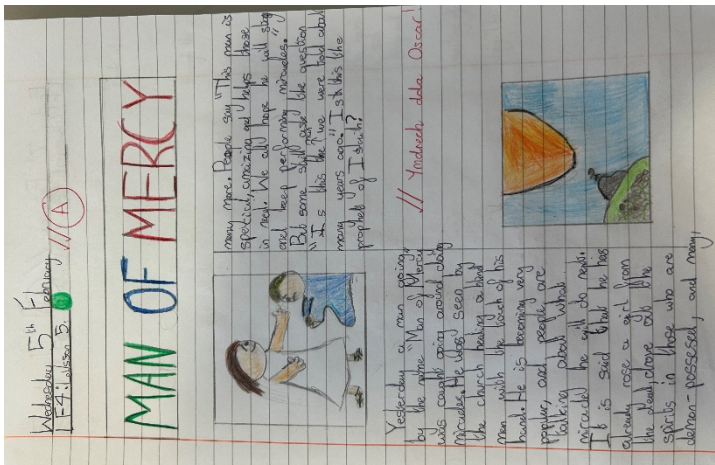 Wednesday 5th February
LF4: Lesson 5: //A
MAN OF MERCY
Yesterday a man going
by the name "Man of Mercy"
was caught going around doing
miracles. He was seen by
the church healing a blind
man with the touch of his
hand. He is becoming very
popular, and people are
talking about what
miracle he will do next.
It is said that he has
already rose a girl from
the dead, drove out the
spirits in those who are
demon-possesed, and many,
many more. People say "This man is
special, amaizing and helps those
in need. We all hope he will stay
and keep performing miracles."
But some still ask the question
"Is this the man we were told about
many years ago." Is this the
prophet of Isaiah?
// Ymdrech dda Oscar!